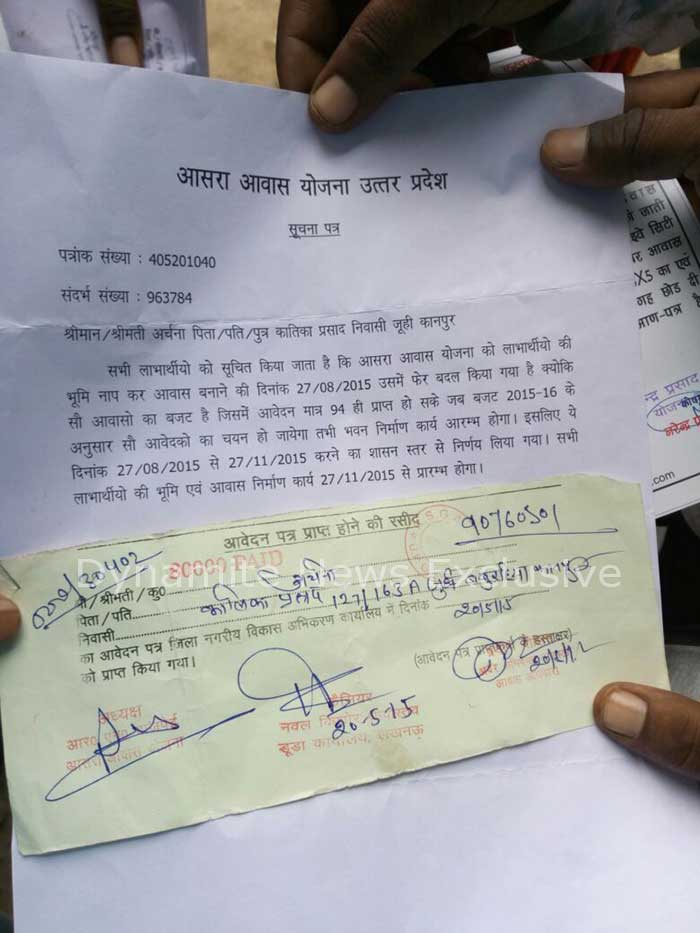 आसरा आवास योजना उत्तर प्रदेश
सूचना पत्र
पत्रांक संख्या : 405201040
संदर्भ संख्या : 963784
श्रीमान/श्रीमती अर्चना पिता/पति/पुत्र कातिका प्रसाद निवासी जूही कानपुर
सभी लाभार्थीयो को सूचित किया जाता है कि आसरा आवास योजना को लाभार्थीयो की
भूमि नाप कर आवास बनाने की दिनांक 27/08/2015 उसमें फेर बदल किया गया है क्योकि
सौ आवासो का बजट है जिसमें आवेदन मात्र 94 ही प्राप्त हो सके जब बजट 2015-16 के
अनुसार सौ आवेदको का चयन हो जायेगा तभी भवन निर्माण कार्य आरम्भ होगा। इसलिए ये
दिनांक 27/08/2015 से 27/11/2015 करने का शासन स्तर से निर्णय लिया गया। सभी
लाभार्थीयो की भूमि एवं आवास निर्माण कार्य 27/11/2015 से प्रारम्भ होगा।
आवेदन पत्र प्राप्त होने की रसीद
90760501
30000 PAID
श्री/श्रीमती/कु0 अर्चना
पिता/पति कालिका प्रसाद 127/163 A जूही
निवासी
का आवेदन पत्र जिला नगरीय विकास अभिकरण कार्यालय में दिनांक 20/5/15
को प्राप्त किया गया।
(आवेदन पत्र प्राप्तकर्ता के हस्ताक्षर)
अध्यक्ष
कैशियर
नवल
20.5.15
सूडा कार्यालय, लखनऊ
आसरा आवास योजना
Dynamite News Exclusive
े जाती
वे सिटी
र आवास
X5 का एवं
गह छोड दी
ाण-पत्र है
न्द्र प्रसाद
.com